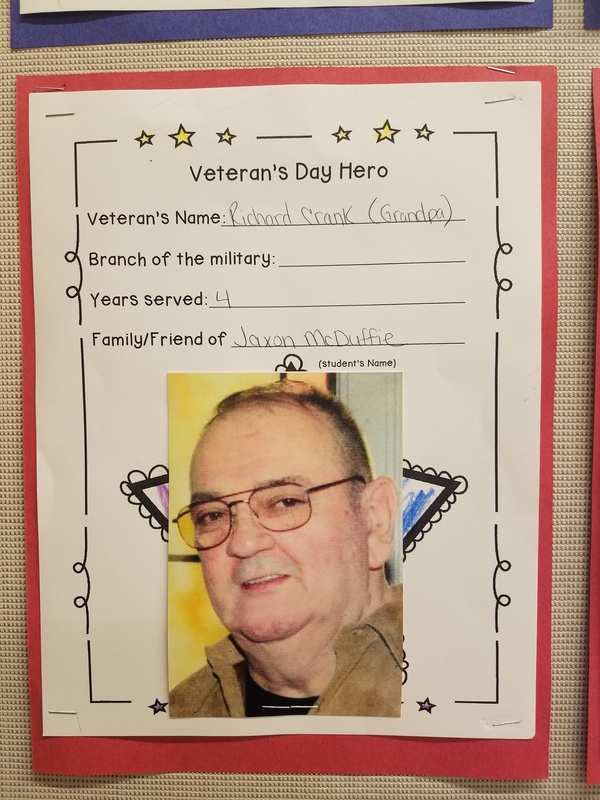 Veteran's Day Hero
Veteran's Name: Richard Crank (Grandpa)
Branch of the military:
Years served: 4
Family/Friend of Jaxon McDuffie
(student's Name)